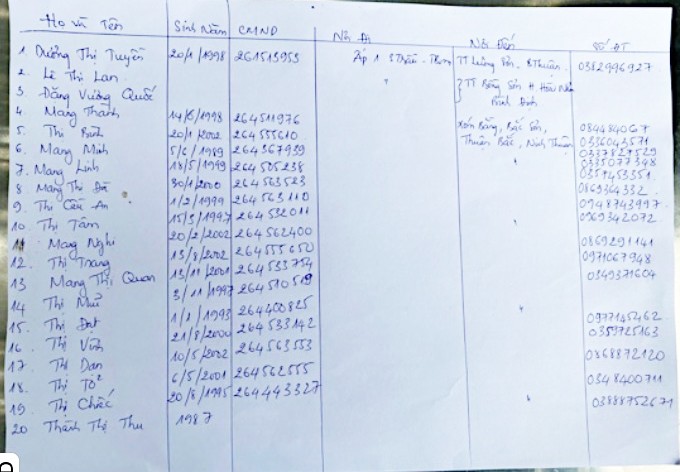 Họ và Tên Sinh Năm CMND Nơi Đi Nơi Đến Số ĐT
1 Dương Thị Tuyền 20/1/1998 261513953 Ấp 1 TT Lương Sơn, B Thuận 0382996927
2. Lê Thị Lan TT Bồng Sơn H
3 Đặng Vương Quốc Bình Định
4. Mang Thành 264511976
5. Thị Bình 20/1/2002 264555610 Xóm Bằng, Bắc Sơn, 084484067
6. Mang Minh 5/6/1989 264367939 Thuận Bắc, Ninh Thuận 0336043571
7. Mang Linh 18/5/1999 264505238 0335077348
8 Mang Thị Đã 30/1/2000 264563523 0351453351
9. Thị Cẩu An 1/2/1999 264563110 0869364332
10. Thị Tâm 15/3/1997 264532011 0948743997
11 Mang Nghi 20/2/2002 264562400 0969342072
12. Thị Trang 13/8/2002 264555650 0869291141
13 Mang Thị Quan 13/11/2001 264533754 0971067948
14 Thị 3/11/1997 264510519 0349371604
15. Thị Đạt 1/1/1993 264400825 0977145462
16. Thị Vĩnh 21/8/2000 264533142 0359725163
17. Thị Dan 10/5/2002 264563553 0868872120
18. Thị Tô 6/5/2001 264562555 0348400711
19. Thị Chắc 20/8/1995 264443327 03888752671
20 Thành Thị Thu 1987